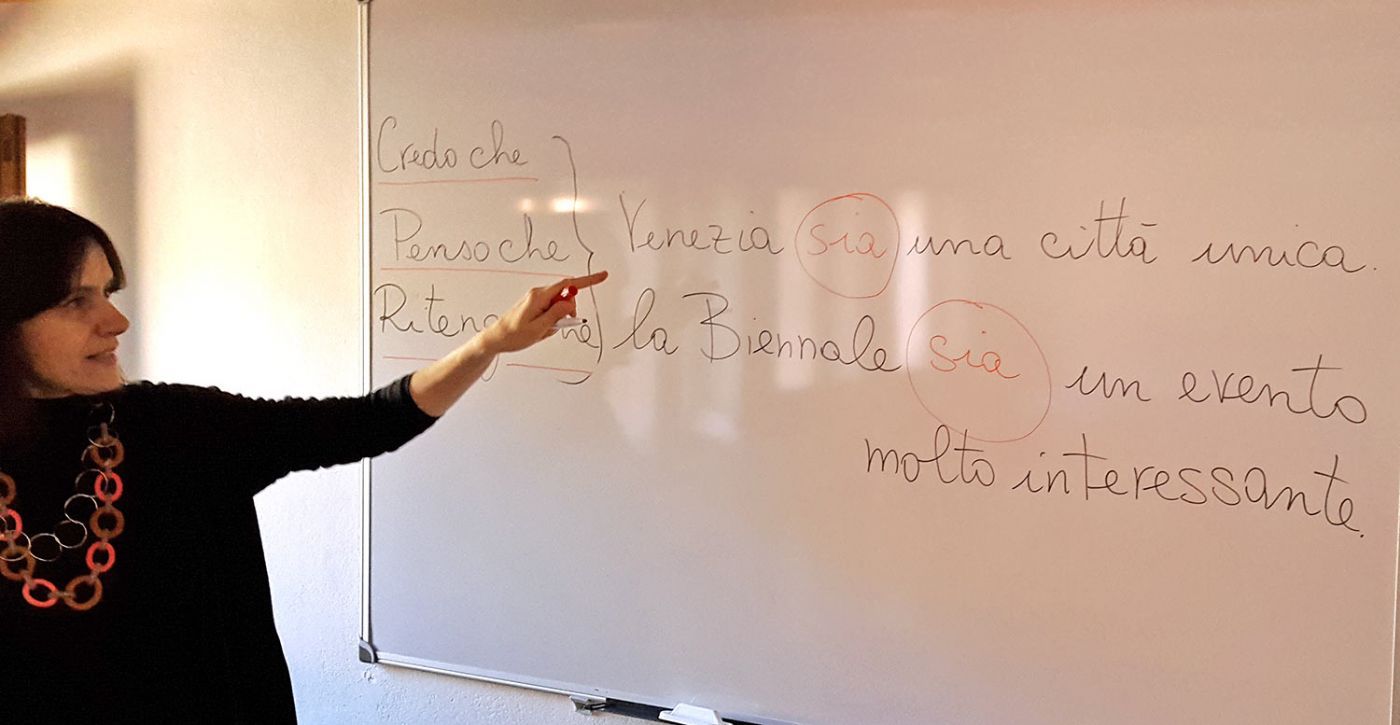 Credo che
Penso che
Venezia sia una città unica.
la Biennale sia un evento
molto interessante.